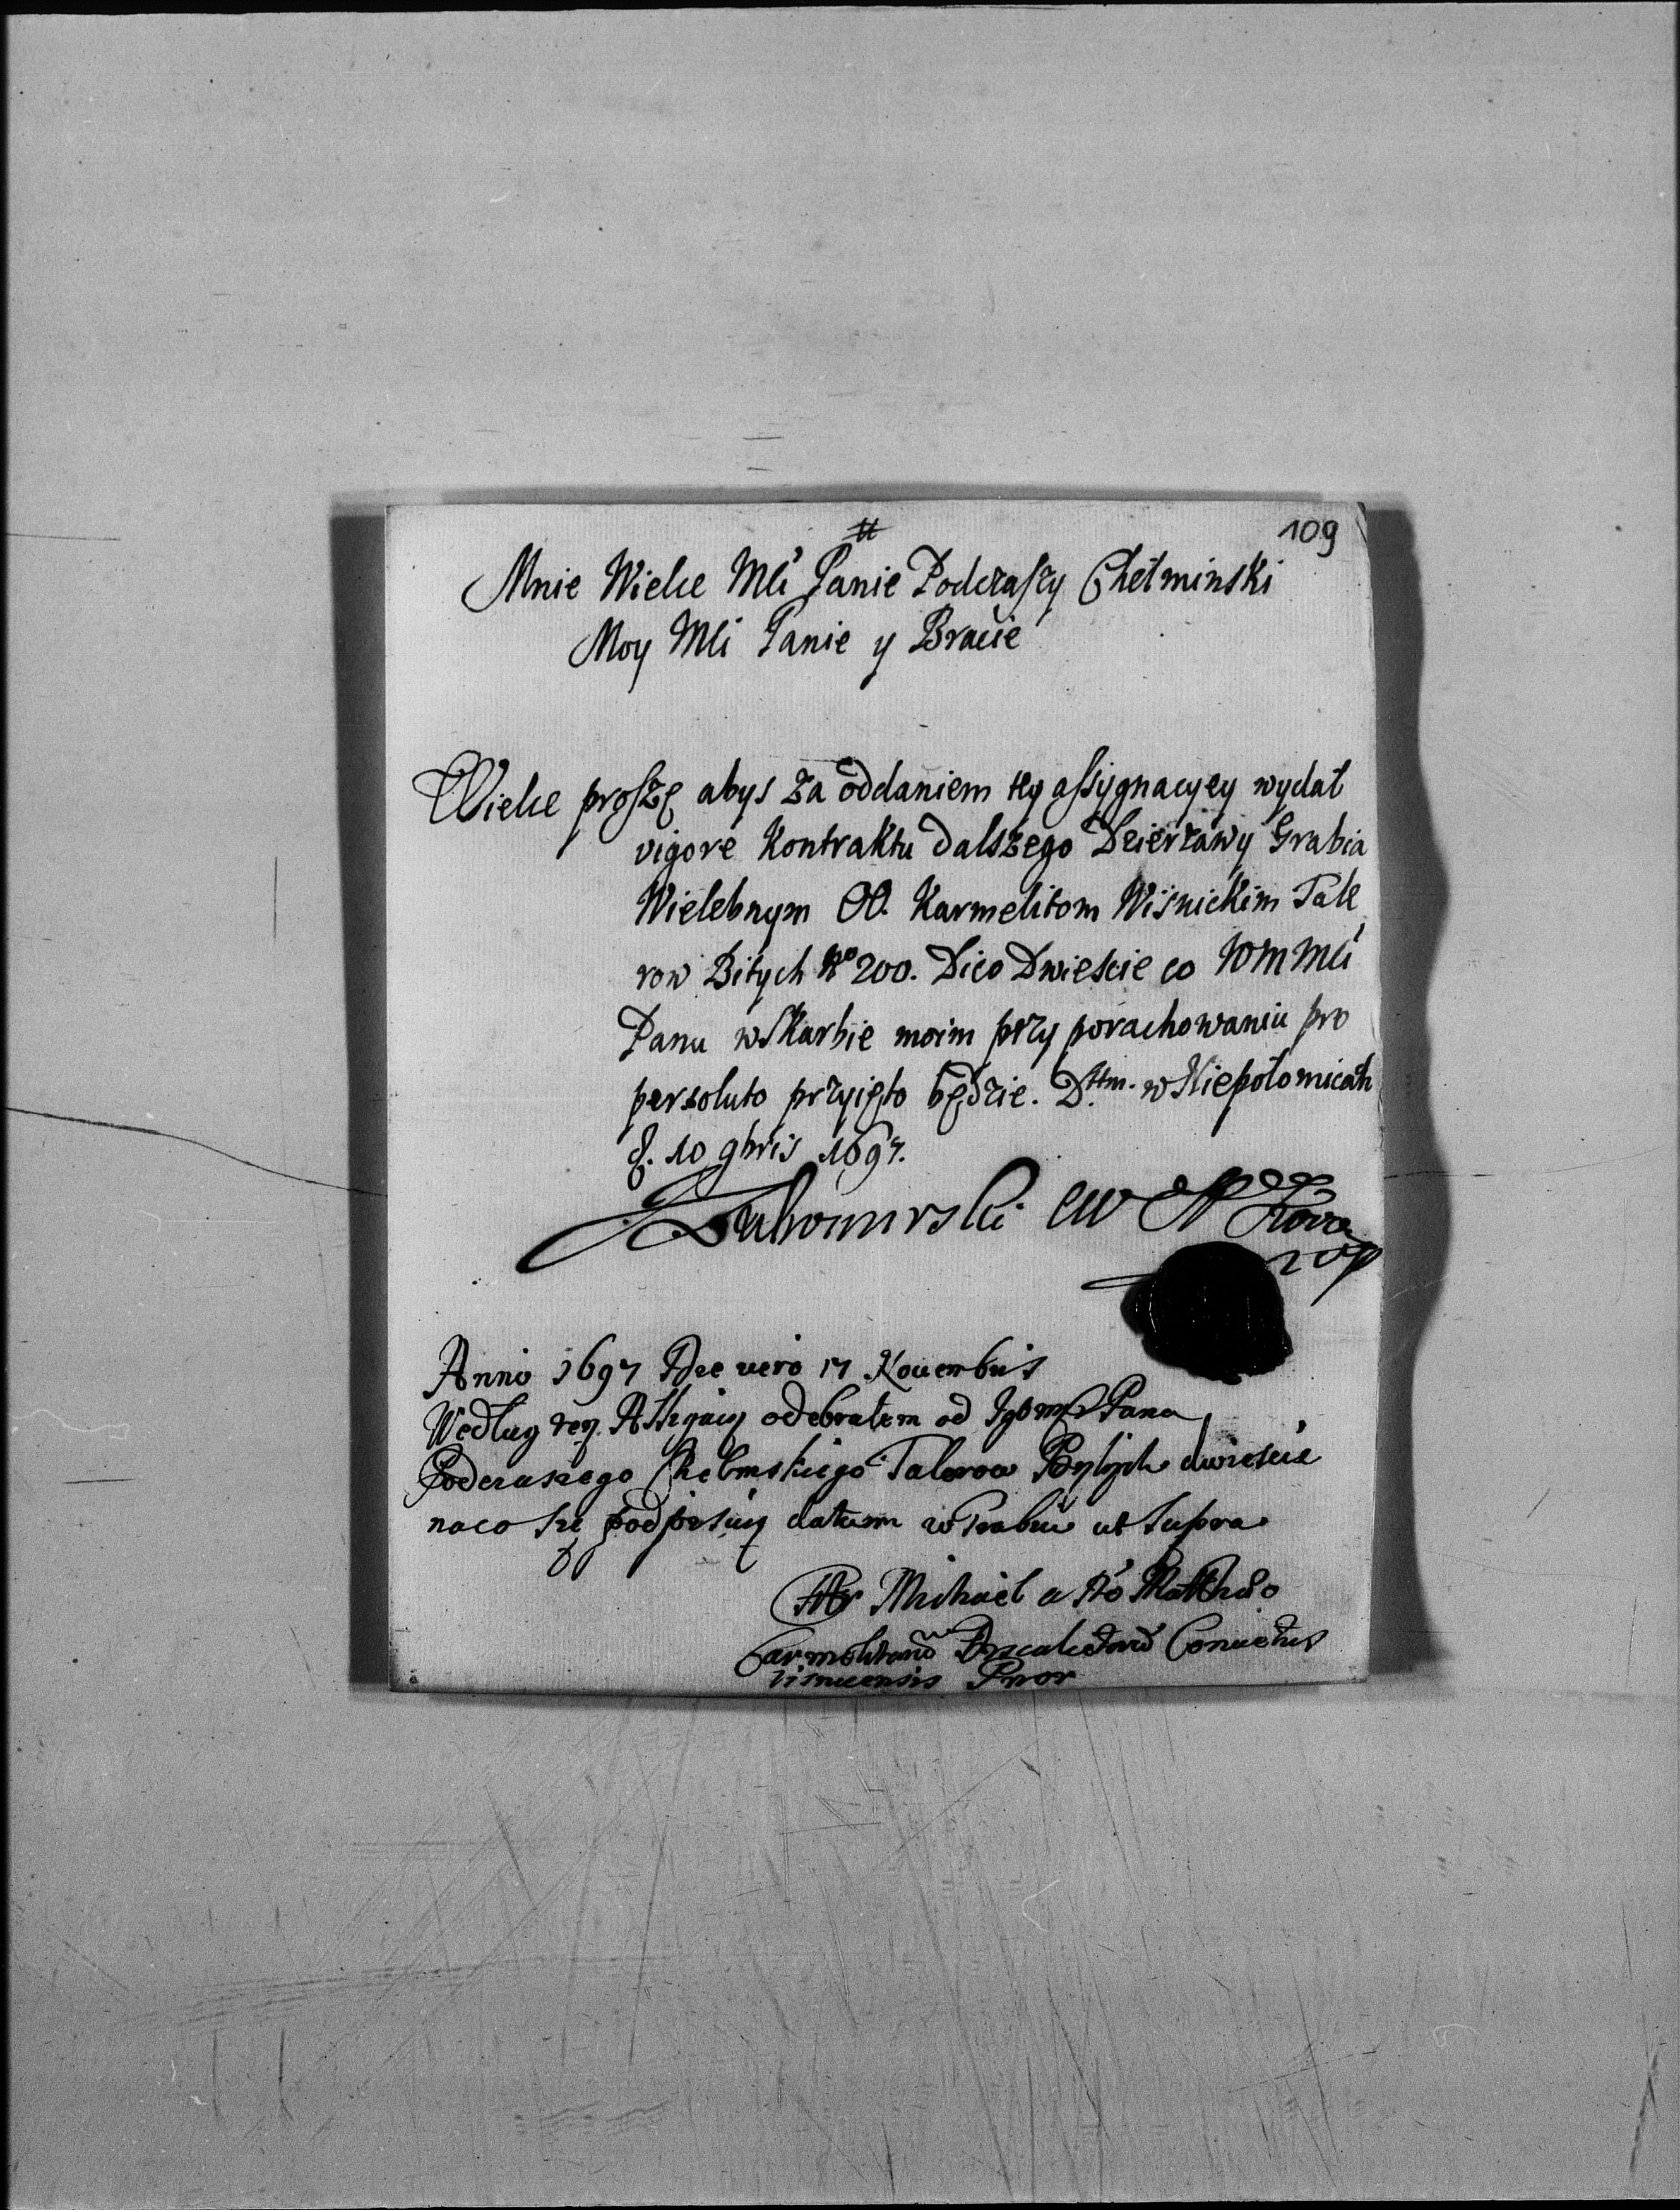 109
Mnie Wielce Mći Panie Podczaszy Chełminski
Moy Mći Panie y Bracie
Wielce proszę abys za oddaniem tey assygnacyey wydał
vigore Kontraktu dalszego Dzierżawy Grabia
Wielebnym OO. Karmelitom Wiśnickim Tale
row Bitych No 200. Dico Dwiescie co WM Mći
Panu w Skarbie moim przy porachowaniu pro
persoluto przyięto będzie. Dttm. w Niepołomicach
d. 10 9bris 1697.
Lubomirski
Anno 1697 Die vero 17 Nouembris
Według tey Assygacy odebrałem od Pana
Podczaszego Chełmskiego Talerow Bytych dwiescie
na co się podpisuię datum w Grabiu ut supra
Michael a Sto Matthæo
Carmelitarū Discalceatorū Conuetus
Visnicensis Prior